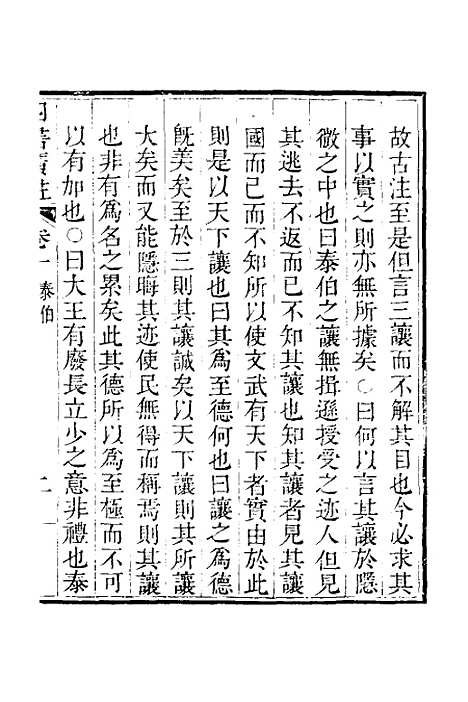 故古注至是但言三讓而不解其目也今必求其
事以實之則亦無所據矣○曰何以言其讓於隱
微之中也曰泰伯之讓無揖遜授受之迹人但見
其逃去不返而已不知其讓也知其讓者見其讓
國而已而不知所以使文武有天下者實由於此
則是以天下讓也曰其爲至德何也曰讓之爲德
既美矣至於三則其讓誠矣以天下讓則其所讓
大矣而又能隱晦其迹使民無得而稱焉則其讓
也非有爲名之累矣此其德所以爲至極而不可
以有加也○曰大王有廢長立少之意非禮也泰
卷一 泰伯 二